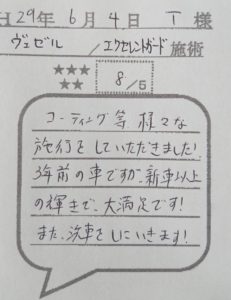 H29年6月4日 T 様
ヴェゼル / エクセレントガード施術
★★★
★★
8/5
コーティング等、様々な
施行をしていただきました!
3年前の車ですが、新車以上
の輝きで、大満足です!
また、洗車をしにいきます!